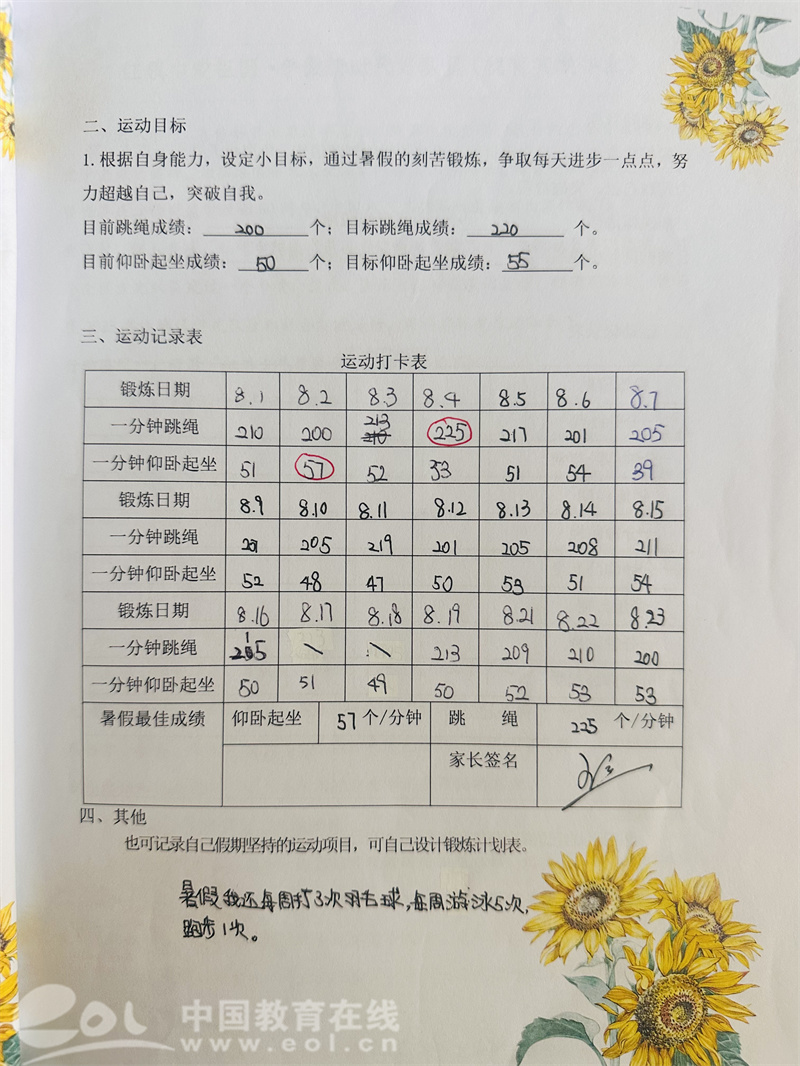 二、运动目标
1.根据自身能力，设定小目标，通过暑假的刻苦锻炼，争取每天进步一点点，努
力超越自己，突破自我。
目前跳绳成绩：200个；目标跳绳成绩：220 个。
目前仰卧起坐成绩：50个；目标仰卧起坐成绩：55个。
三、运动记录表
运动打卡表
锻炼日期 8.1 8.2 8.3 8.4 8.5 8.6 8.7
一分钟跳绳 210 200 213 225 217 201 205
一分钟仰卧起坐 51 57 52 53 51 54 39
锻炼日期 8.9 8.10 8.11 8.12 8.13 8.14 8.15
一分钟跳绳 201 205 219 201 205 208 211
一分钟仰卧起坐 52 48 47 50 53 51 54
锻炼日期 8.16 8.17 8.18 8.19 8.21 8.22 8.23
一分钟跳绳 215 \ \ 213 209 210 200
一分钟仰卧起坐 50 51 49 50 52 53 53
暑假最佳成绩 仰卧起坐 57个/分钟 跳 绳 225 个/分钟
家长签名
四、其他
也可记录自己假期坚持的运动项目，可自己设计锻炼计划表。
暑假我还每周打3次羽毛球，每周游泳5次，
跑步1次。
eol 中国教育在线
www.eol.cn